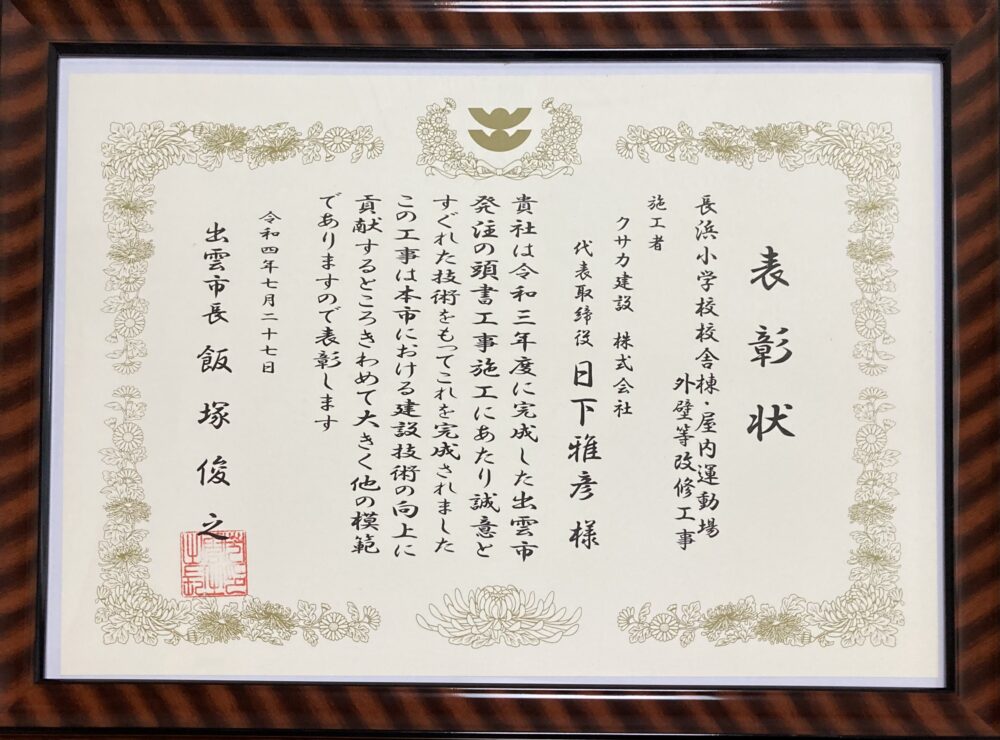 表彰状
長浜小学校校舎棟・屋内運動場
外壁等改修工事
施工者
クサカ建設 株式会社
代表取締役 日下雅彦 様
貴社は令和三年度に完成した出雲市
発注の頭書工事施工にあたり誠意と
すぐれた技術をもってこれを完成されました
この工事は本市における建設技術の向上に
貢献するところきわめて大きく他の模範
でありますので表彰します
令和四年七月二十七日
出雲市長 飯塚俊之